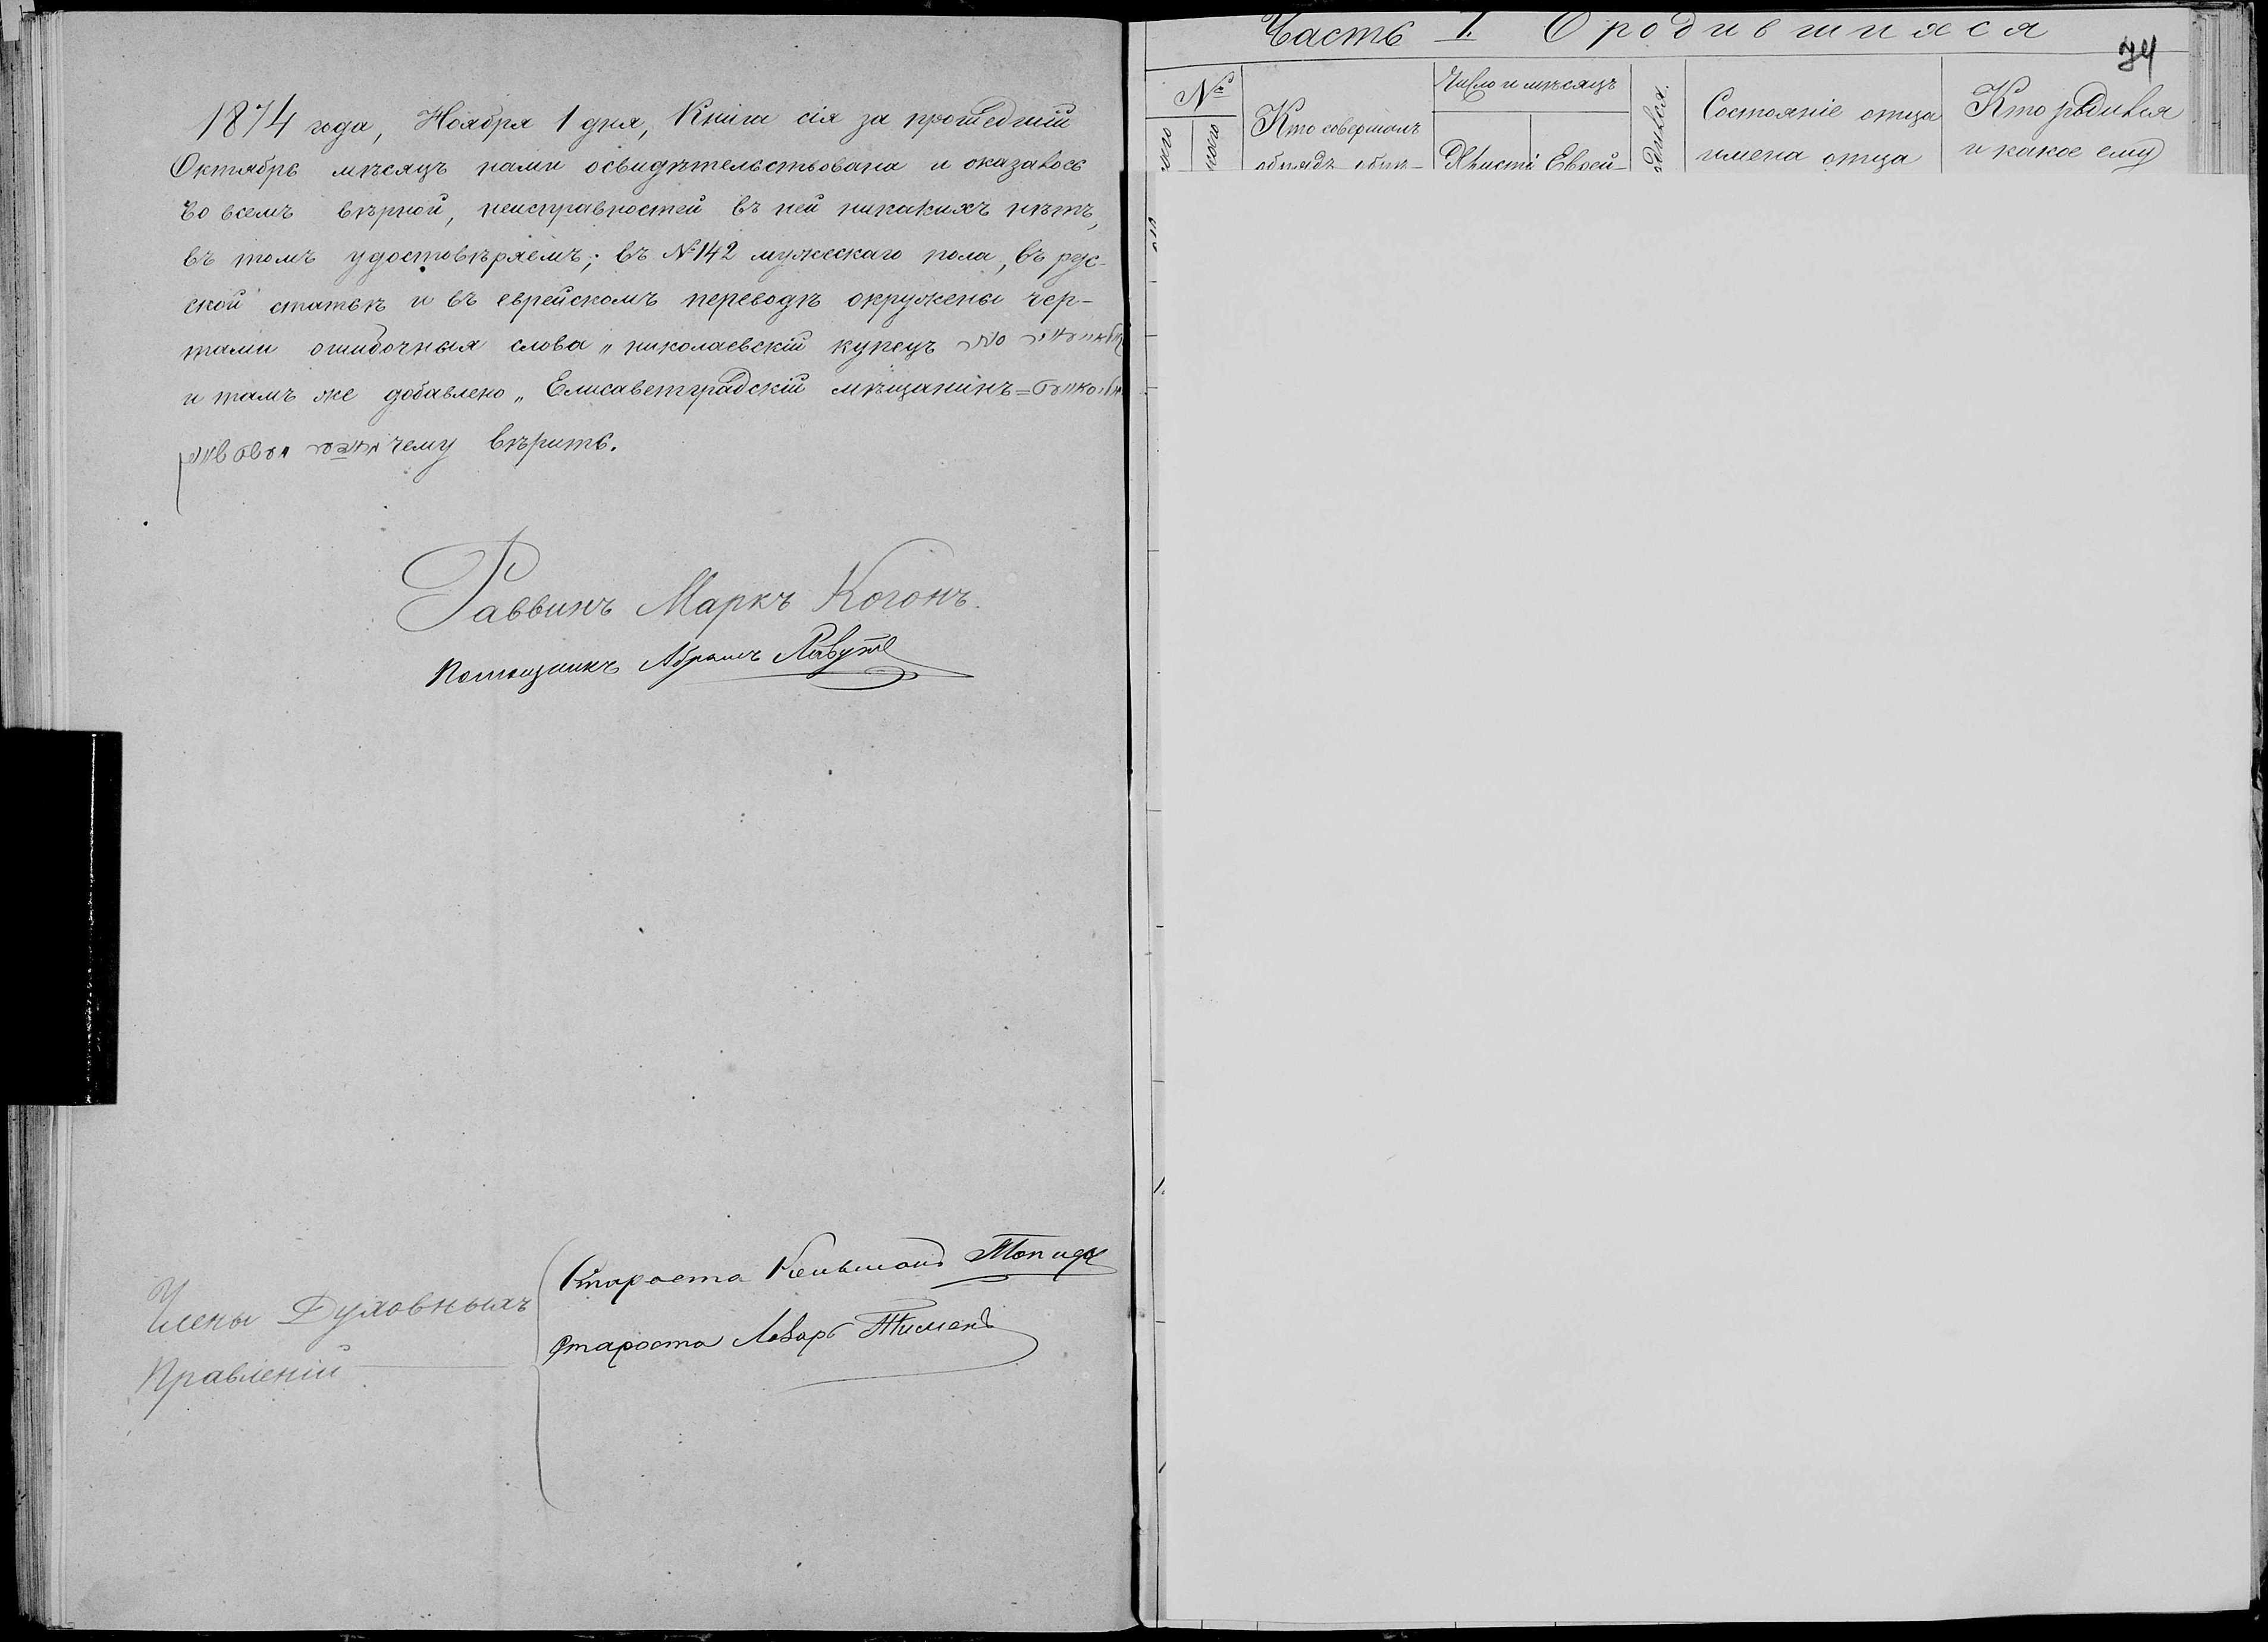 1874 года, Ноября 1 дня, Книга сія за прошедшій
Октябрь мѣсяцъ нами освидѣтельствована и оказалось
во всемъ вѣрной, неисправностей въ ней никакихъ нѣтъ,
въ томъ удостовѣряемъ; въ № 142 мужескаго пола, въ рус-
ской статьѣ и въ еврейскомъ переводѣ окружены чер-
тами ошибочныя слова „николаевскій купецъ
и тамъ же добавлено „Елисаветградскій мѣщанинъ=
чему вѣрить.
Раввинъ Маркъ Когонъ.
Помощникъ Абрамъ
Члены Духовныхъ
Правленій
Староста
Староста Лазарь
Часть I. О родившихся
74
№
Кто совершалъ
обрядъ обрѣ-
Число и мѣсяцъ
Христі
Еврей-
родился.
Состояніе отца
имена отца
Кто родился
и какое ему